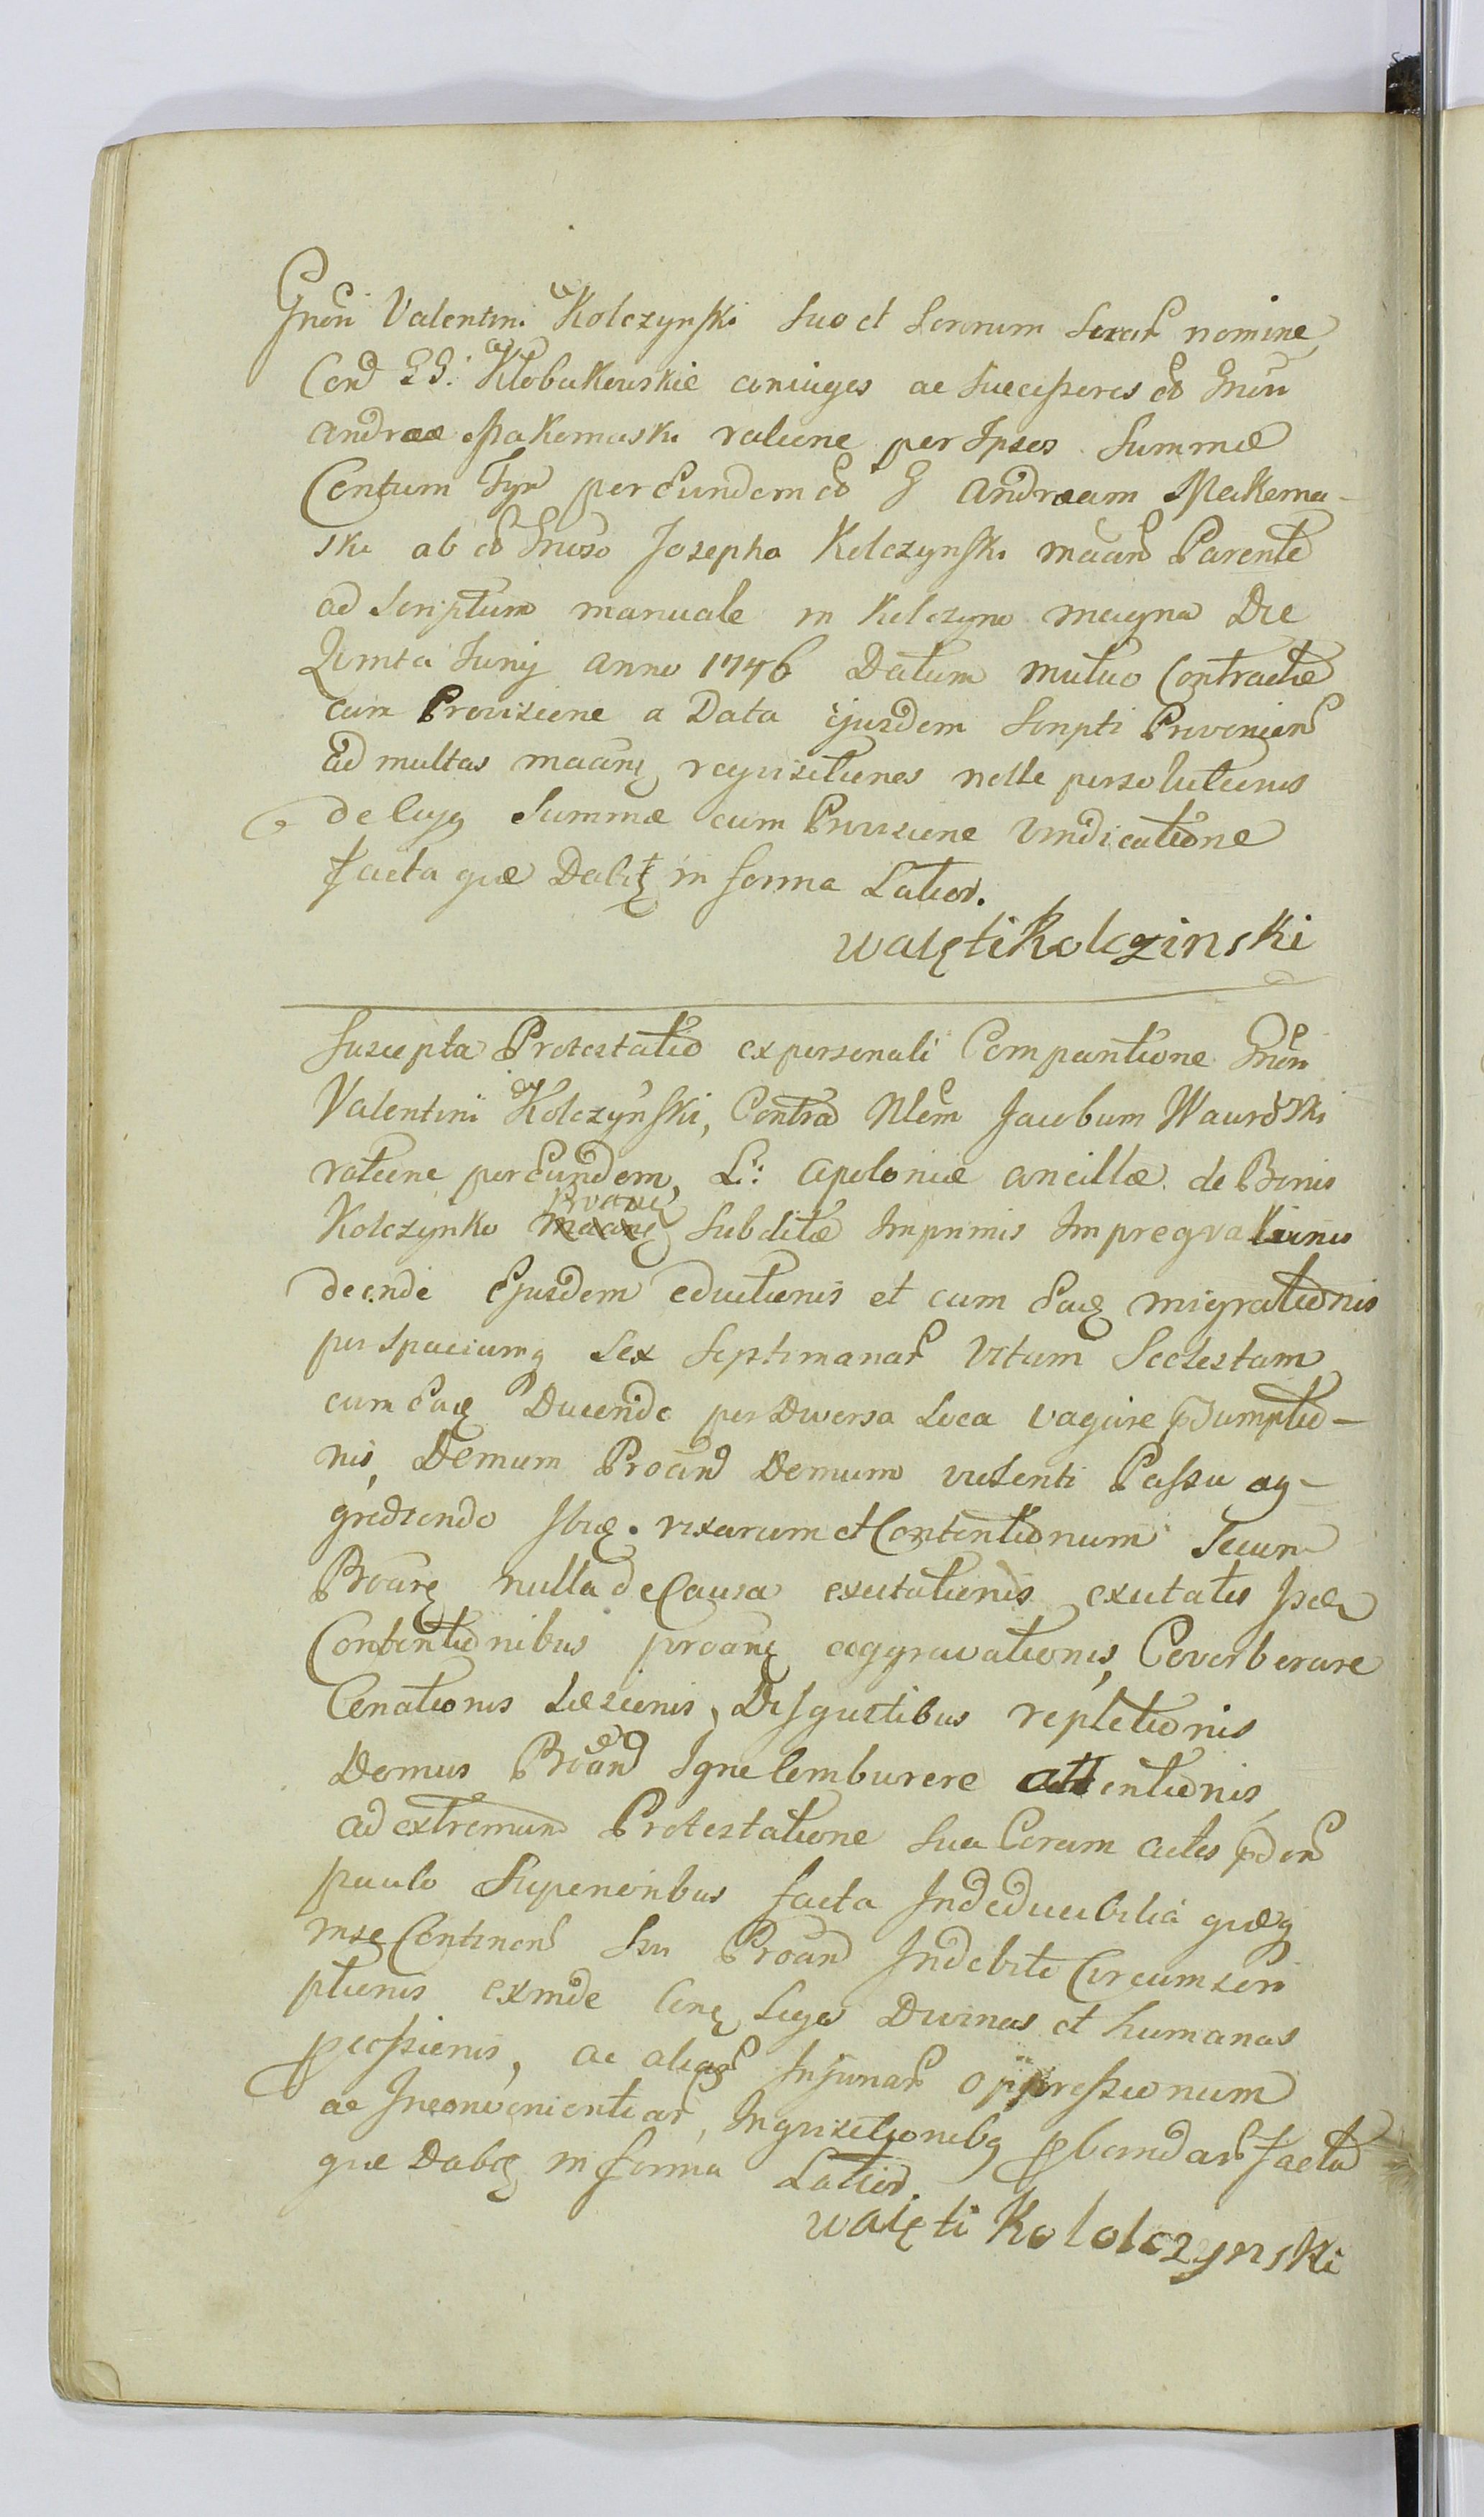 Gnosi Valentini Kolczynski suo et Sororum suar nomine
Cont GG: Kłobukowskie coniuges ac Successores od Gnosi
Andreae Makomaski ratione per Ipsos Summae
Centum Tyn per Eundem od G Andraeam Makoma-
ski ab od Gnoso Josepho Kolczynski maand Parente
ad Scriptum manuale in Kolczyno magna Die
Quinta Junij Anno 1746 Datum mutuo Contractae
cum Provisione a Data ejusdem Scripti Provenien
ad multas maans requisitiones nolle persolutionis
de Cujq Summae cum Provisione vindicatione
facta quae Dabit in forma Latior.
walęti Kolczinski
Suscepta Protestatio ex personali Comparitione Gnosi
Valentini Kolczynski, Contra Nlem Jacobum Wawrski
ratione per Eundem, L: Apoloniae ancillae de Bonis
Kolczynko Proans Subditae Imprimis Impregnationis
deinde Ejusdem eductionis et cum Eaq migrationis
per spaciumq Sex Septimanar Vitam Scelestam
cum Eaq Ducendo per Diversa Loca vagare psumptio-
nis, Demum Proand Domum violenti Passu ag-
grediendo Ibiq. rixarum et Contentionum Secum
Proane nulla de Causa excitationis excitatis
Contentionibus proane aggravationis, Coverberare
Conationis Laesionis, Disgustibus repletionis
Domus Proand Igne comburere attentionis,
ad extremum Protestatione sua Coram actis pden
paulo Superioribus facta Indeducibilia quaeq
in se Continen Sui Proand Indebite Circumscri
ptionis exinde Conq Leges Divinas et humanas
pcessionis, ac aliar Injuriar oppressionum
ac Inconvenientiar, Inquisitionibq pbandar Facta
quae Dabit in forma Latior.
walęti Kololczynski